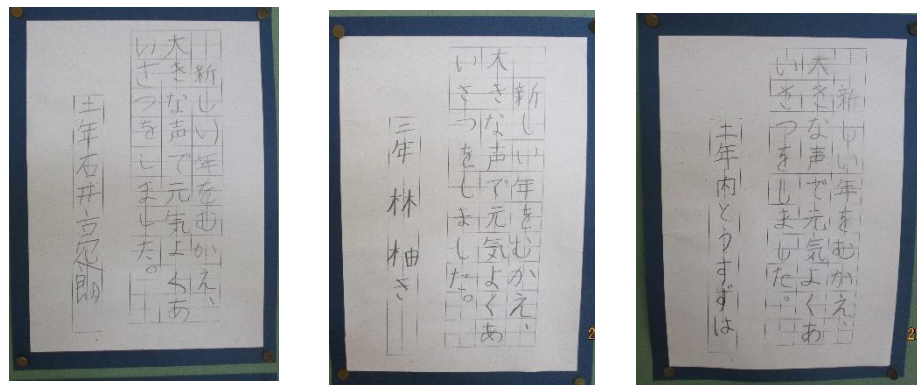 新しい年をむかえ、
大きな声で元気よくあ
いさつをしました。
三年石井
新しい年をむかえ、
大きな声で元気よくあ
いさつをしました。
三年 林 柚き
新しい年をむかえ、
大きな声で元気よくあ
いさつをしました。
三年内とうすずは